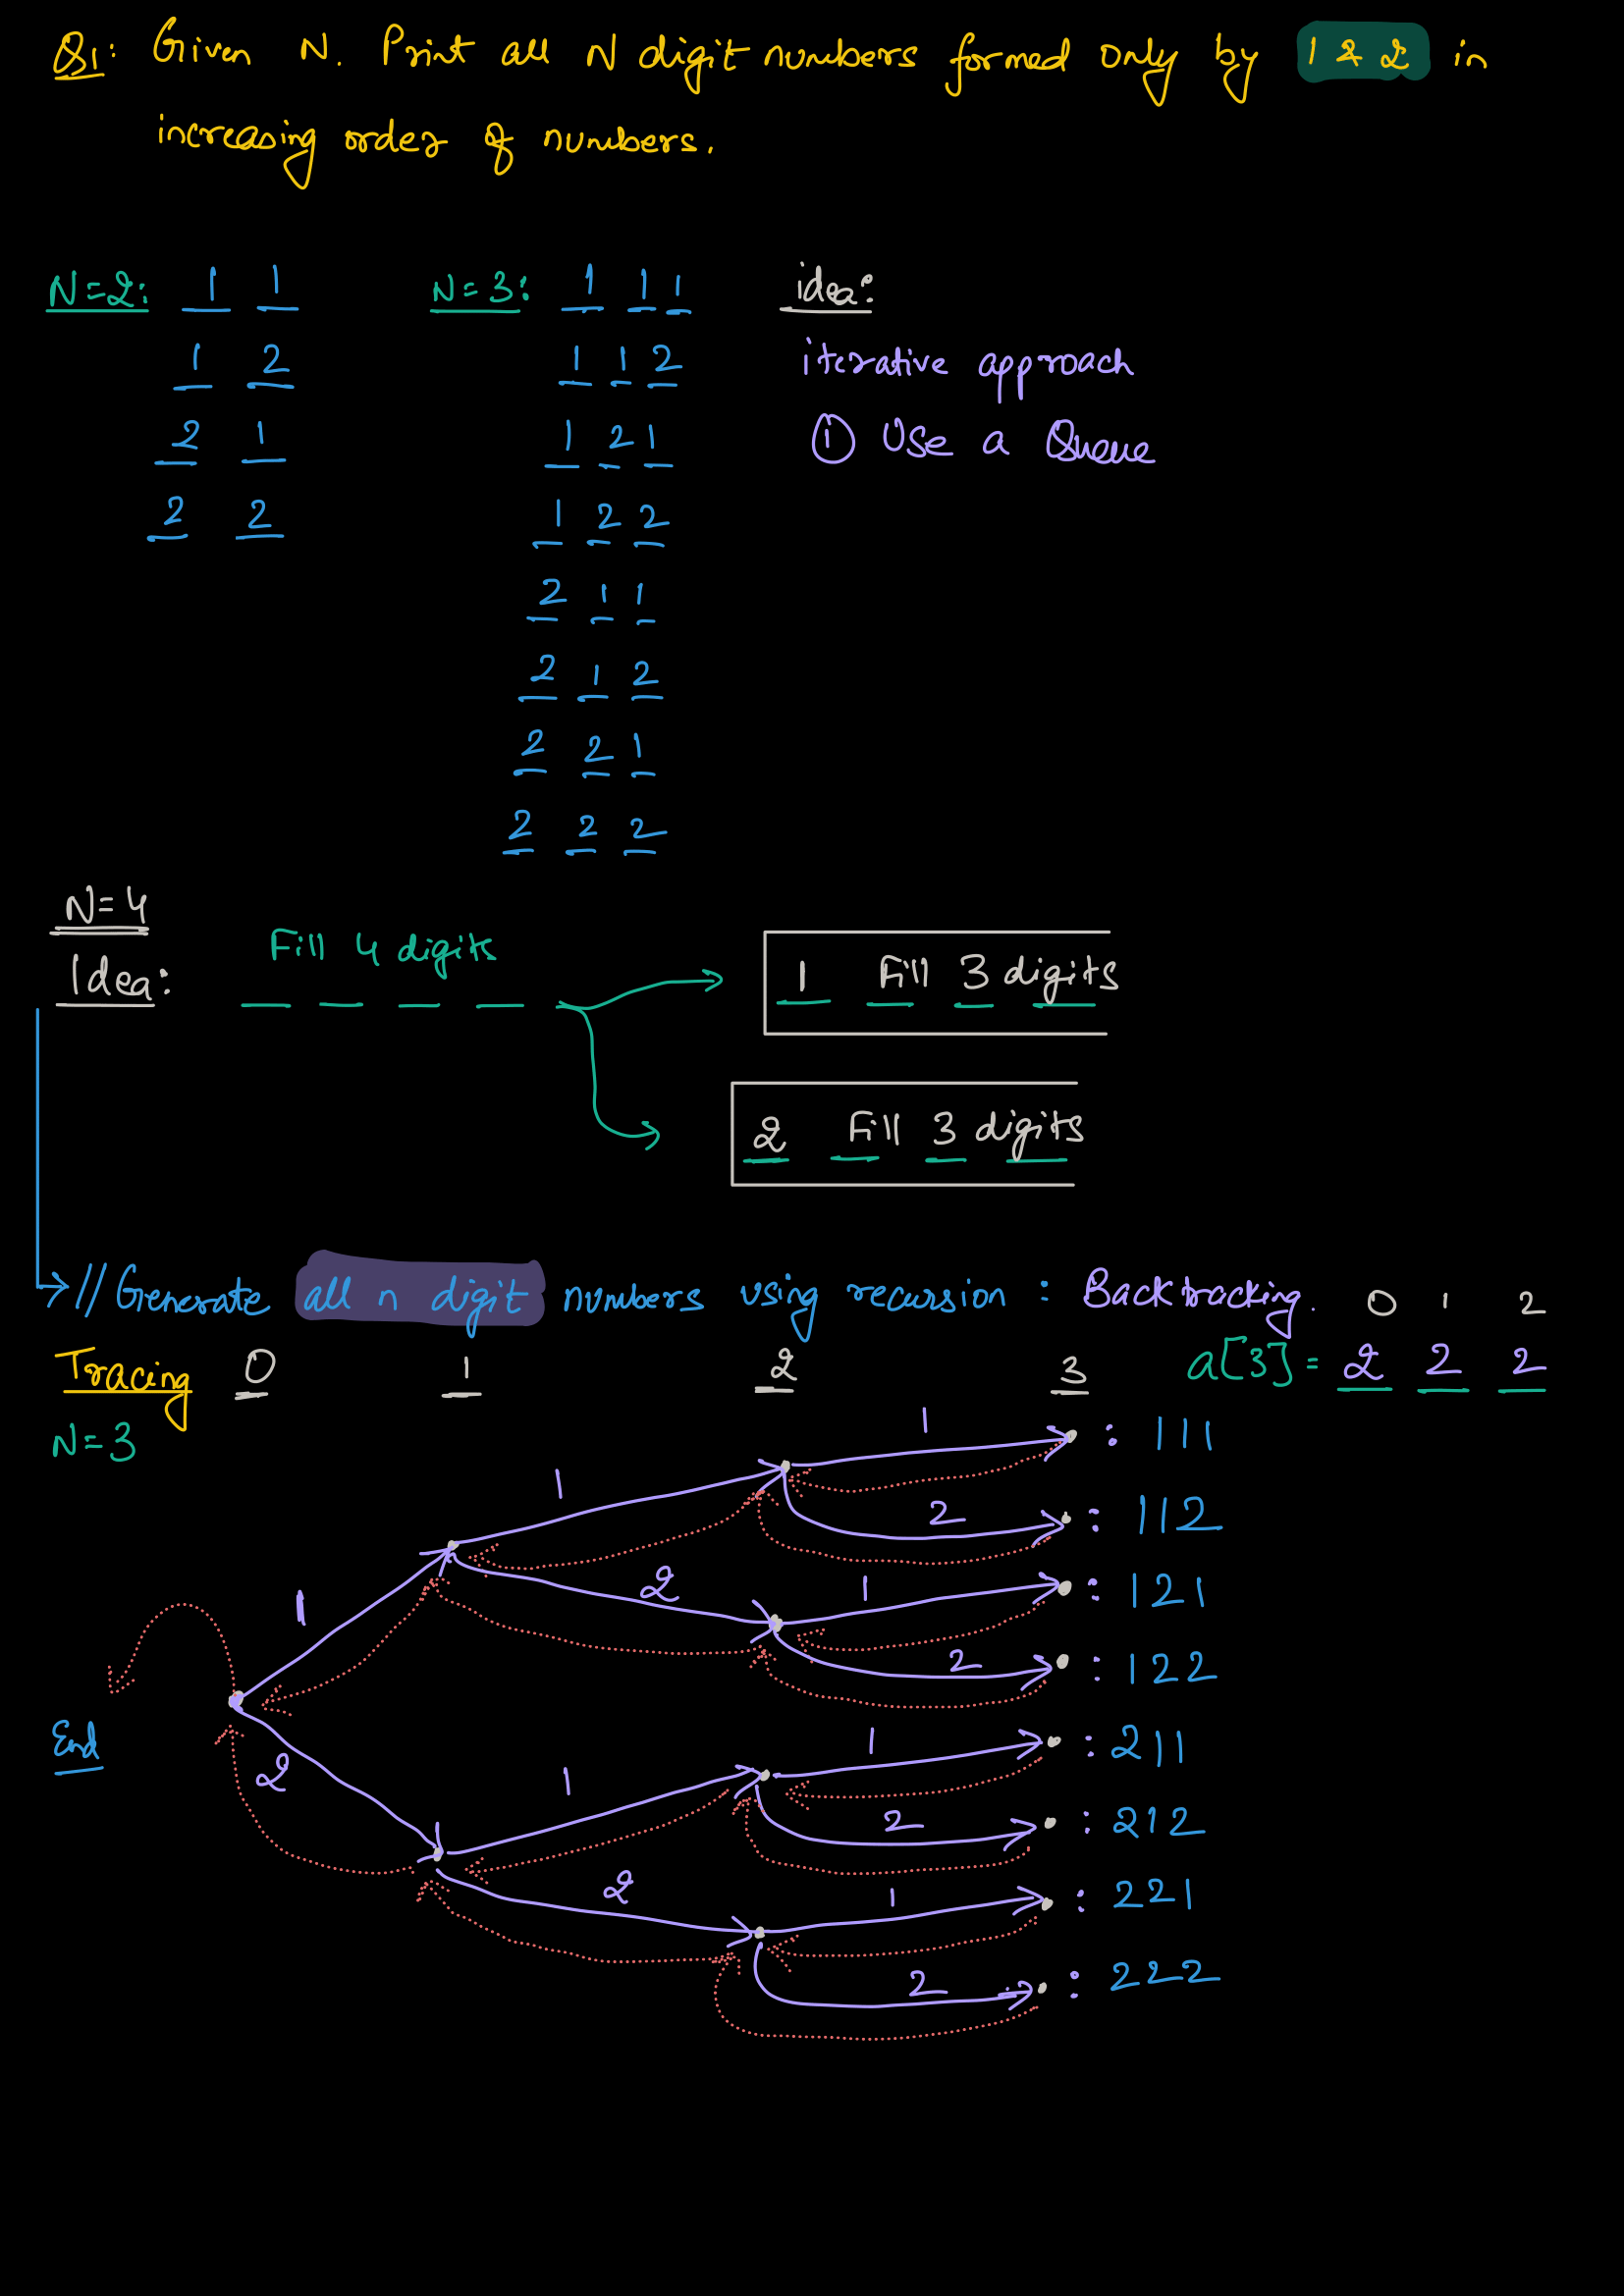 Q1: Given N. Print all N digit numbers formed only by 1 & 2 in
increasing order of numbers.
N=2: 1 1
1 2
2 1
2 2
N=3: 1 1 1
1 1 2
1 2 1
1 2 2
2 1 1
2 1 2
2 2 1
2 2 2
idea:
iterative approach
① Use a Queue
N=4
Idea:
Fill 4 digits
1 Fill 3 digits
2 Fill 3 digits
//Generate all n digit numbers using recursion : Backtracking.
0 1 2
a[3] = 2 2 2
Tracing 0 1 2 3
N=3
1 : 111
1
2 : 112
1
2
1 : 121
2 : 122
End
1 : 211
2
1
2 : 212
2
1 : 221
2 : 222